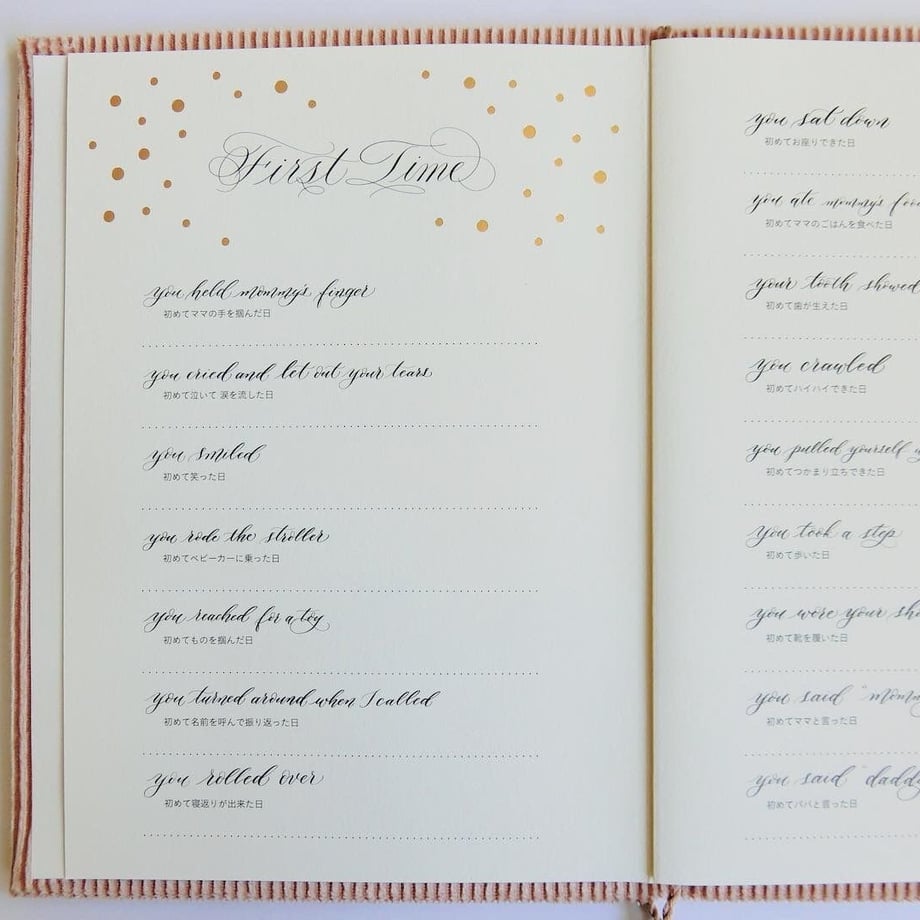 First Time
you held mommy's finger
初めてママの手を掴んだ日
you cried and let out your tears
初めて泣いて 涙を流した日
you smiled
初めて笑った日
you rode the stroller
初めてベビーカーに乗った日
you reached for a toy
初めてものを掴んだ日
you turned around when I called
初めて名前を呼んで振り返った日
you rolled over
初めて寝返りが出来た日
you sat down
初めてお座りできた日
you ate mommy's foo
初めてママのごはんを食べた日
your tooth showed
初めて歯が生えた日
you crawled
初めてハイハイできた日
you pulled yourself
初めてつかまり立ちできた日
you took a step
初めて歩いた日
you wore your sh
初めて靴を履いた日
you said "momm
初めてママと言った日
you said "dadd
初めてパパと言った日